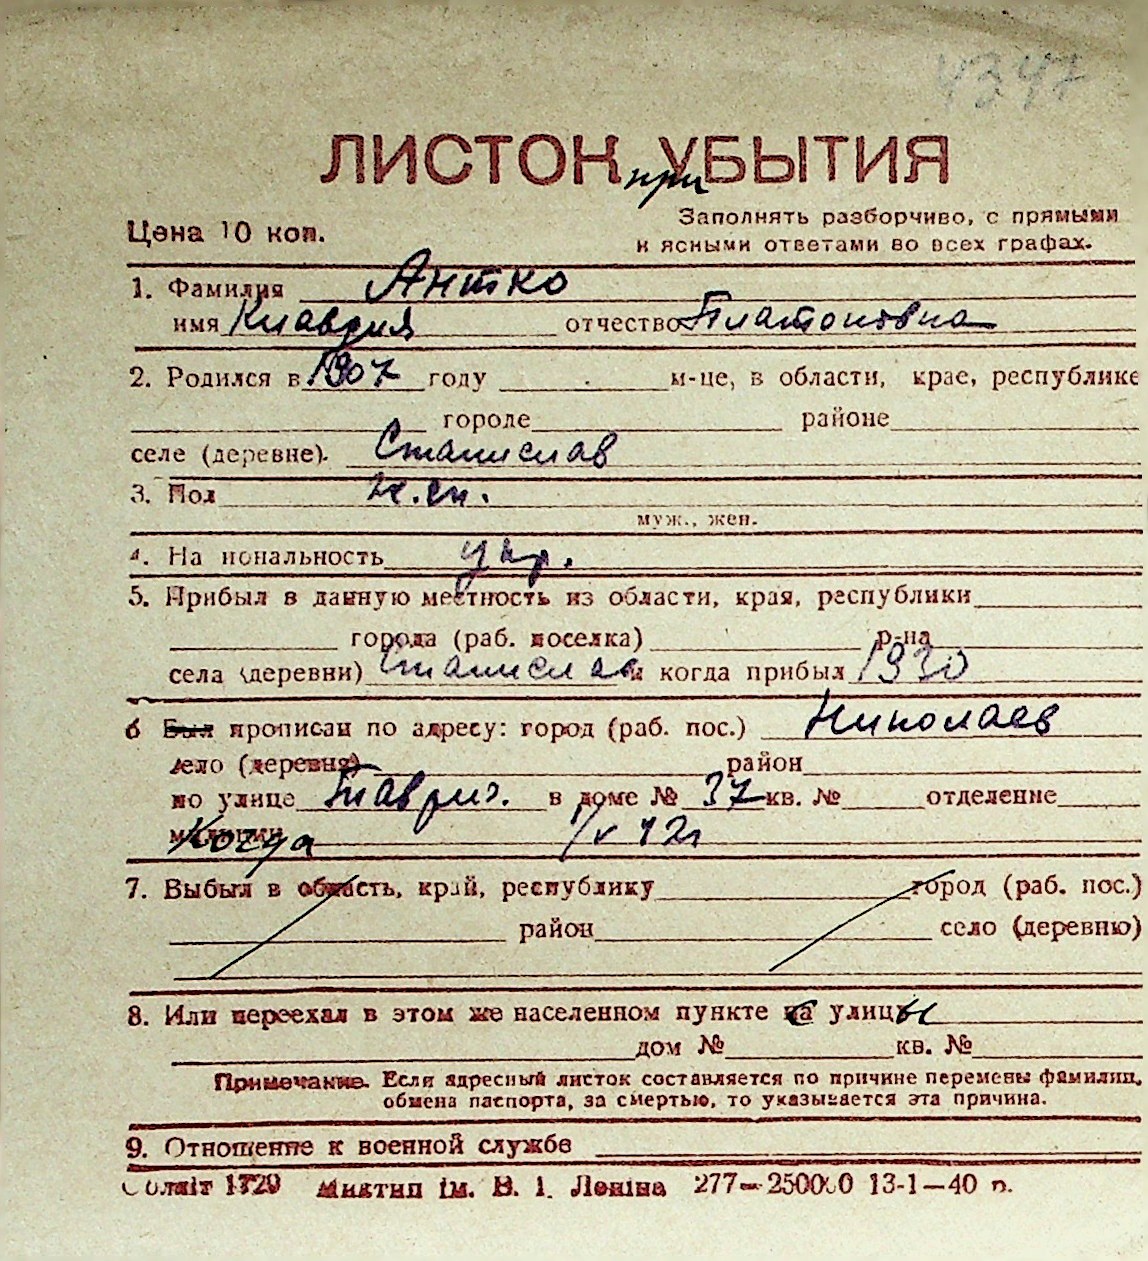 4347
ЛИСТОК при УБЫТИЯ
Цена 10 коп.
Заполнять разборчиво, с прямыми
и ясными ответами во всех графах.
1. Фамилия Антко
имя Клавдия отчество Платоновна
2. Родился в 1907 году м-це, в области, крае, республике
городе районе
селе (деревне). Станислав
3. Пол ж.
муж., жен.
4. На иональность укр.
5. Прибыл в данную местность из области, края, республики
города (раб. поселка) р-на
села (деревни) Станислав и когда прибыл 1930
6 Был прописан по адресу: город (раб. пос.) Николаев
село (деревня) район
по улице Таврич. в доме № 37 кв. № отделение
милиции Когда 1/V 42г
7. Выбыл в область, край, республику город (раб. пос.)
район село (деревню)
8. Или переехал в этом же населенном пункте с улицы
дом № кв. №
Примечание. Если адресный листок составляется по причине перемены фамилии,
обмена паспорта, за смертью, то указывается эта причина.
9. Отношение к военной службе
Облліт 1720 Миктип ім. В. І. Леніна 277—250000 13-1—40 р.